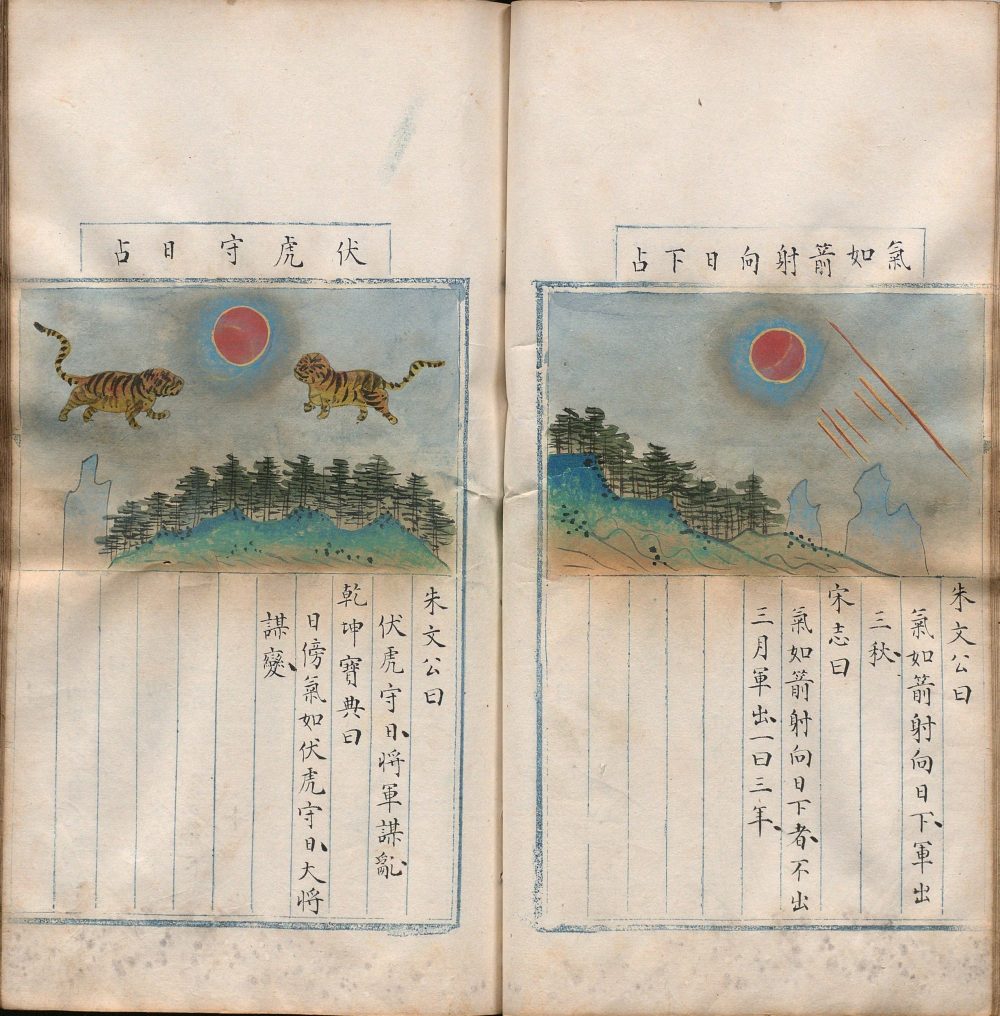 氣如箭射向日下占
朱文公曰
氣如箭射向日下、軍出
三秋、
宋志曰
氣如箭射向日下者、不出
三月軍出、一曰三年、
伏虎守日占
朱文公曰
伏虎守日、將軍謀亂、
乾坤寶典曰
日傍氣如伏虎守日、大將
謀變、